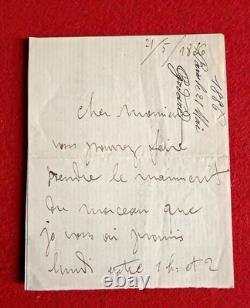 21/5/18
1886
Paris le 21 Mai
Cher Monsieur
vous pouvez faire
prendre le manuscrit
du morceau que
je vous ai promis
lundi entre 1h. et 2